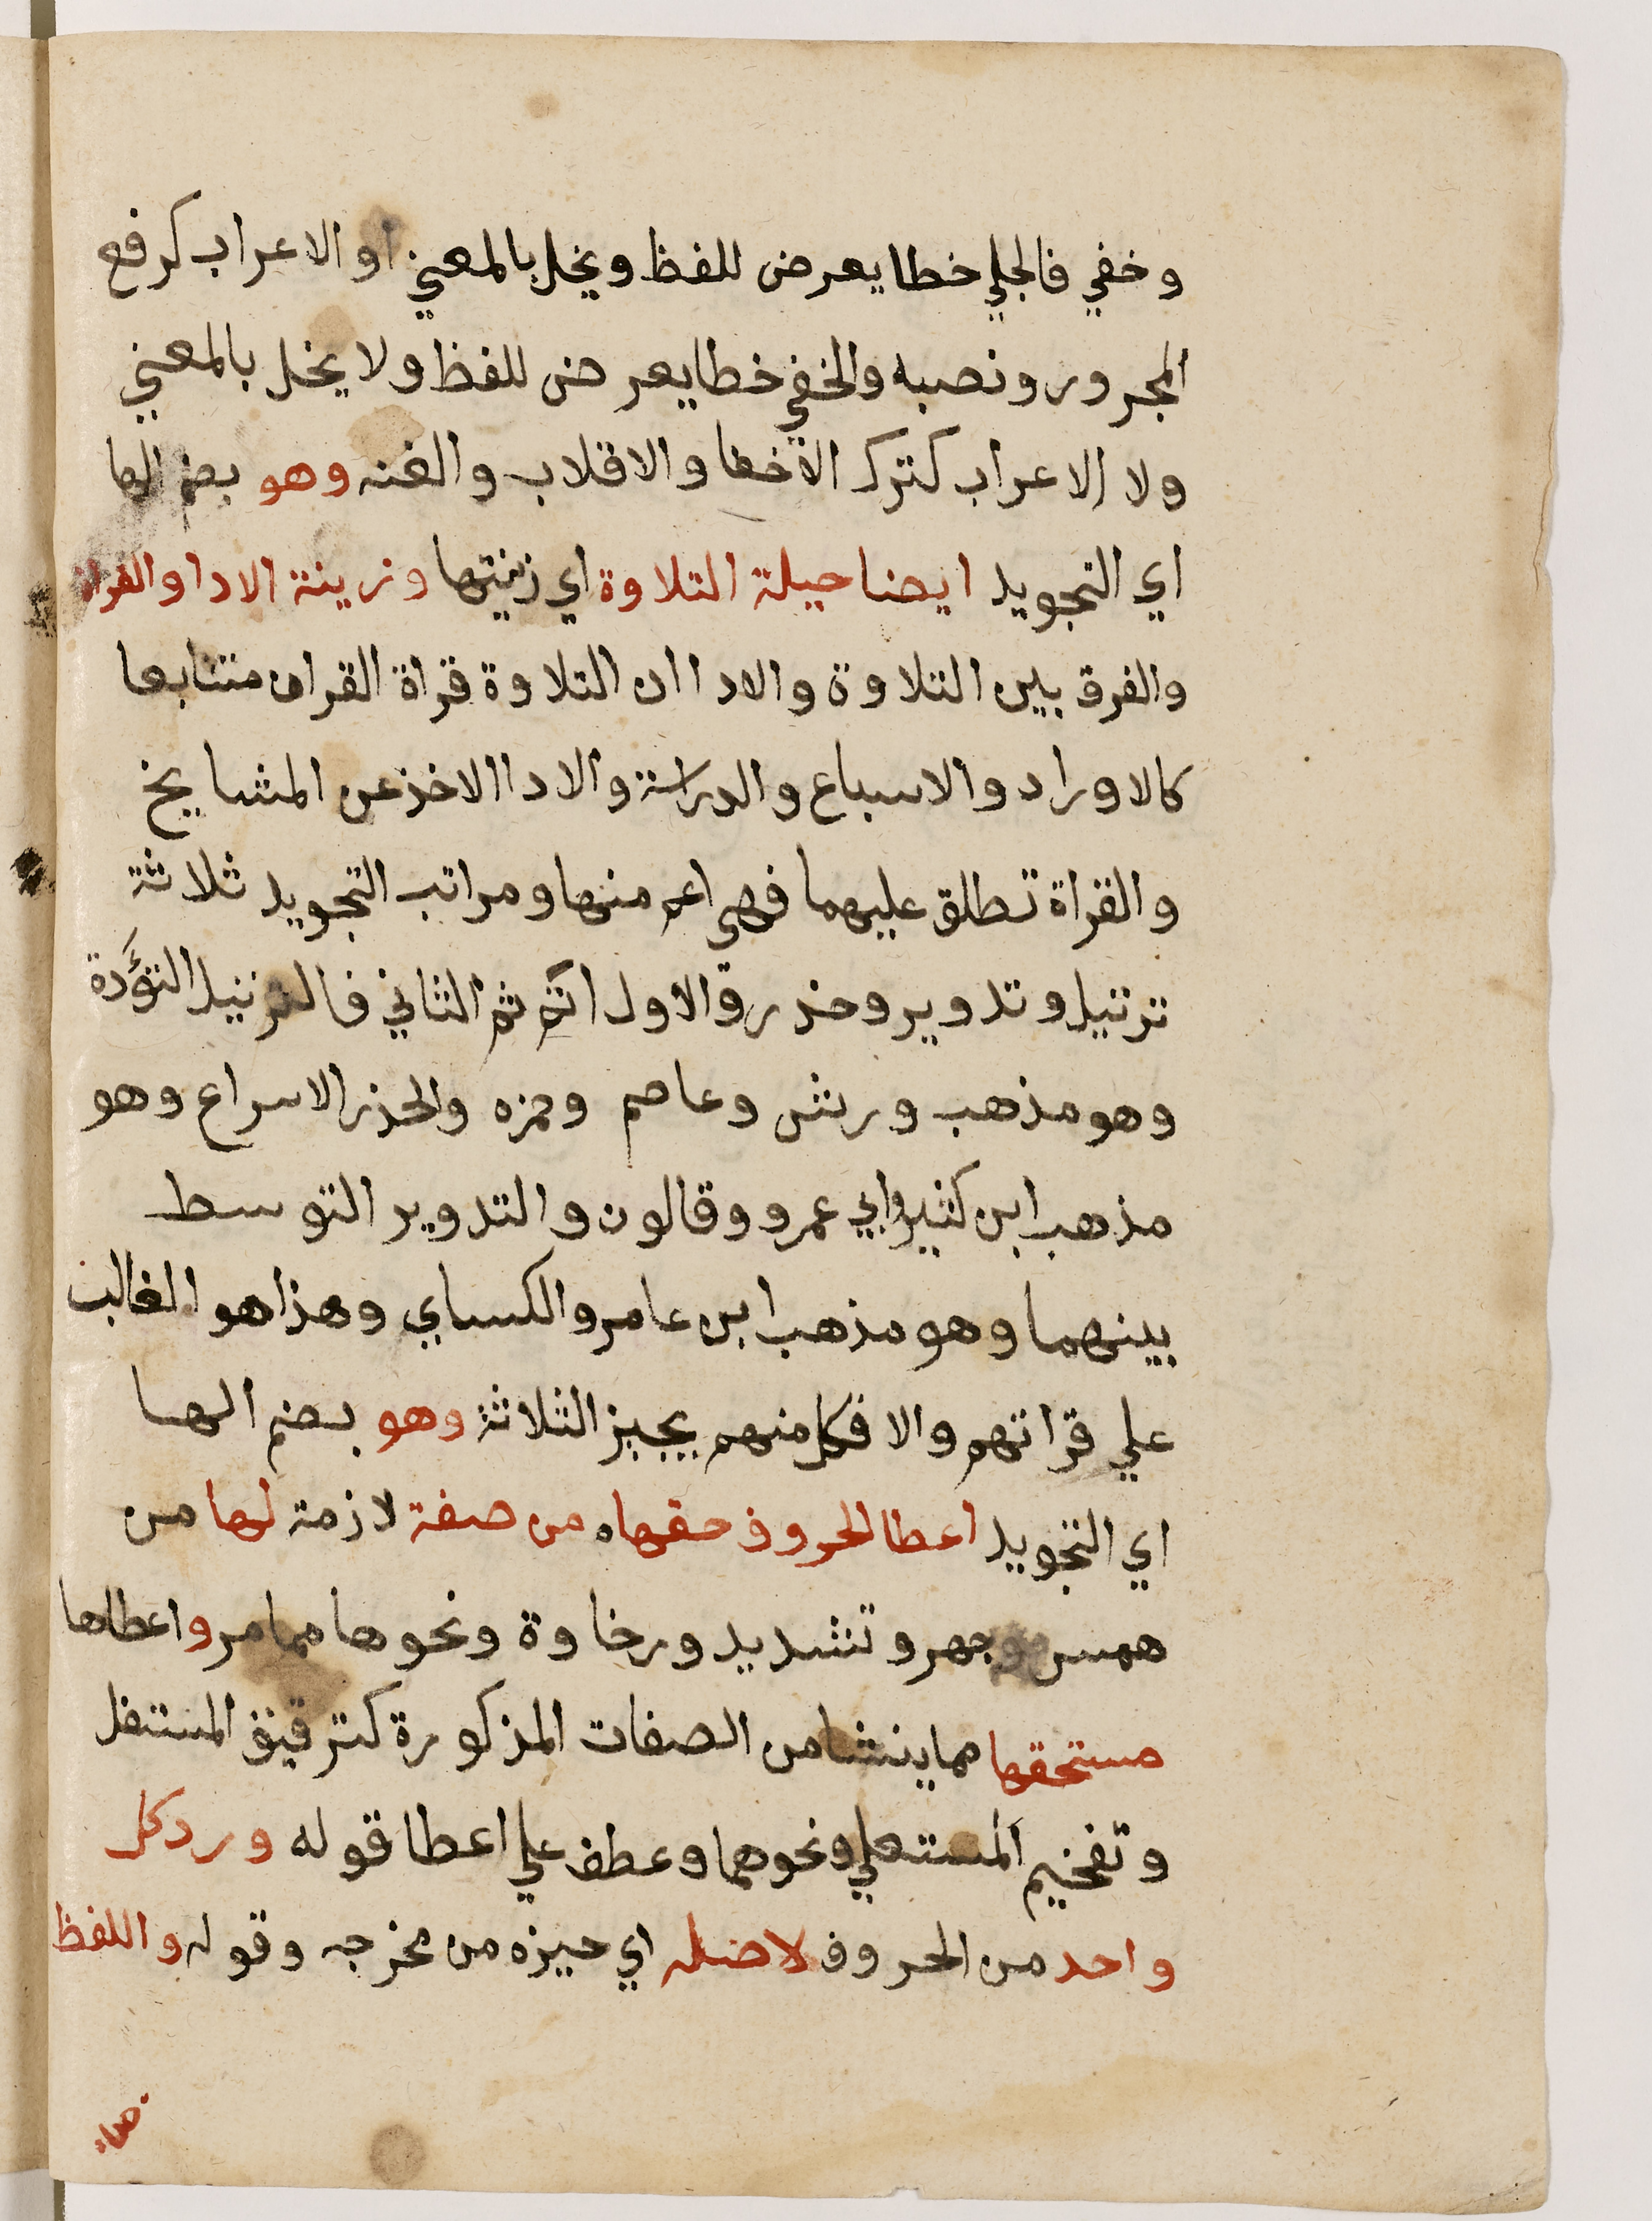 وخفي فالجلي خطا يعرض للفظ ويخل بالمعني او الاعراب كرفع
المجرور ونصبه والخفي خطا يعرض للفظ ولا يخل بالمعني
ولا الاعراب كترك الاخفا والاقلاب والغنه وهو بضم الها
اي التجويد ايضا حيلة التلاوة اي زينتها وزينة الادا والقراة
والفرق بين التلاوة والادا ان التلاوة قراة القران متتابعا
كالاوراد والاسباع والدراسة والادا الاخذ عن المشايخ
والقراة تطلق عليهما فهي اعم منها ومراتب التجويد ثلاثة
ترتيل وتدوير وحذر والاول اتم ثم الثاني فالترتيل التؤَدة
وهو مذهب ورش وعاصم وحمزه والحذر الاسراع وهو
مذهب ابن كثير وابي عمرو وقالون والتدوير التوسط
بينهما وهو مذهب ابن عامر والكساي وهذا هو الغالب
علي قراتهم والا فكل منهم يجيز الثلاثة وهو بضم الها
اي التجويد اعطا الحروف حقها من صفة لازمة لها من
همس وجهر وتشديد ورخاوة ونحوها مما مر واعطاها
مستحقها مما ينشا من الصفات المذكورة كترقيق المستفل
وتفخيم المستعلي ونحوهما وعطف علي اعطا قوله ورد كل
واحد من الحروف لاصله اي حيزه من مخرجه وقوله واللفظ